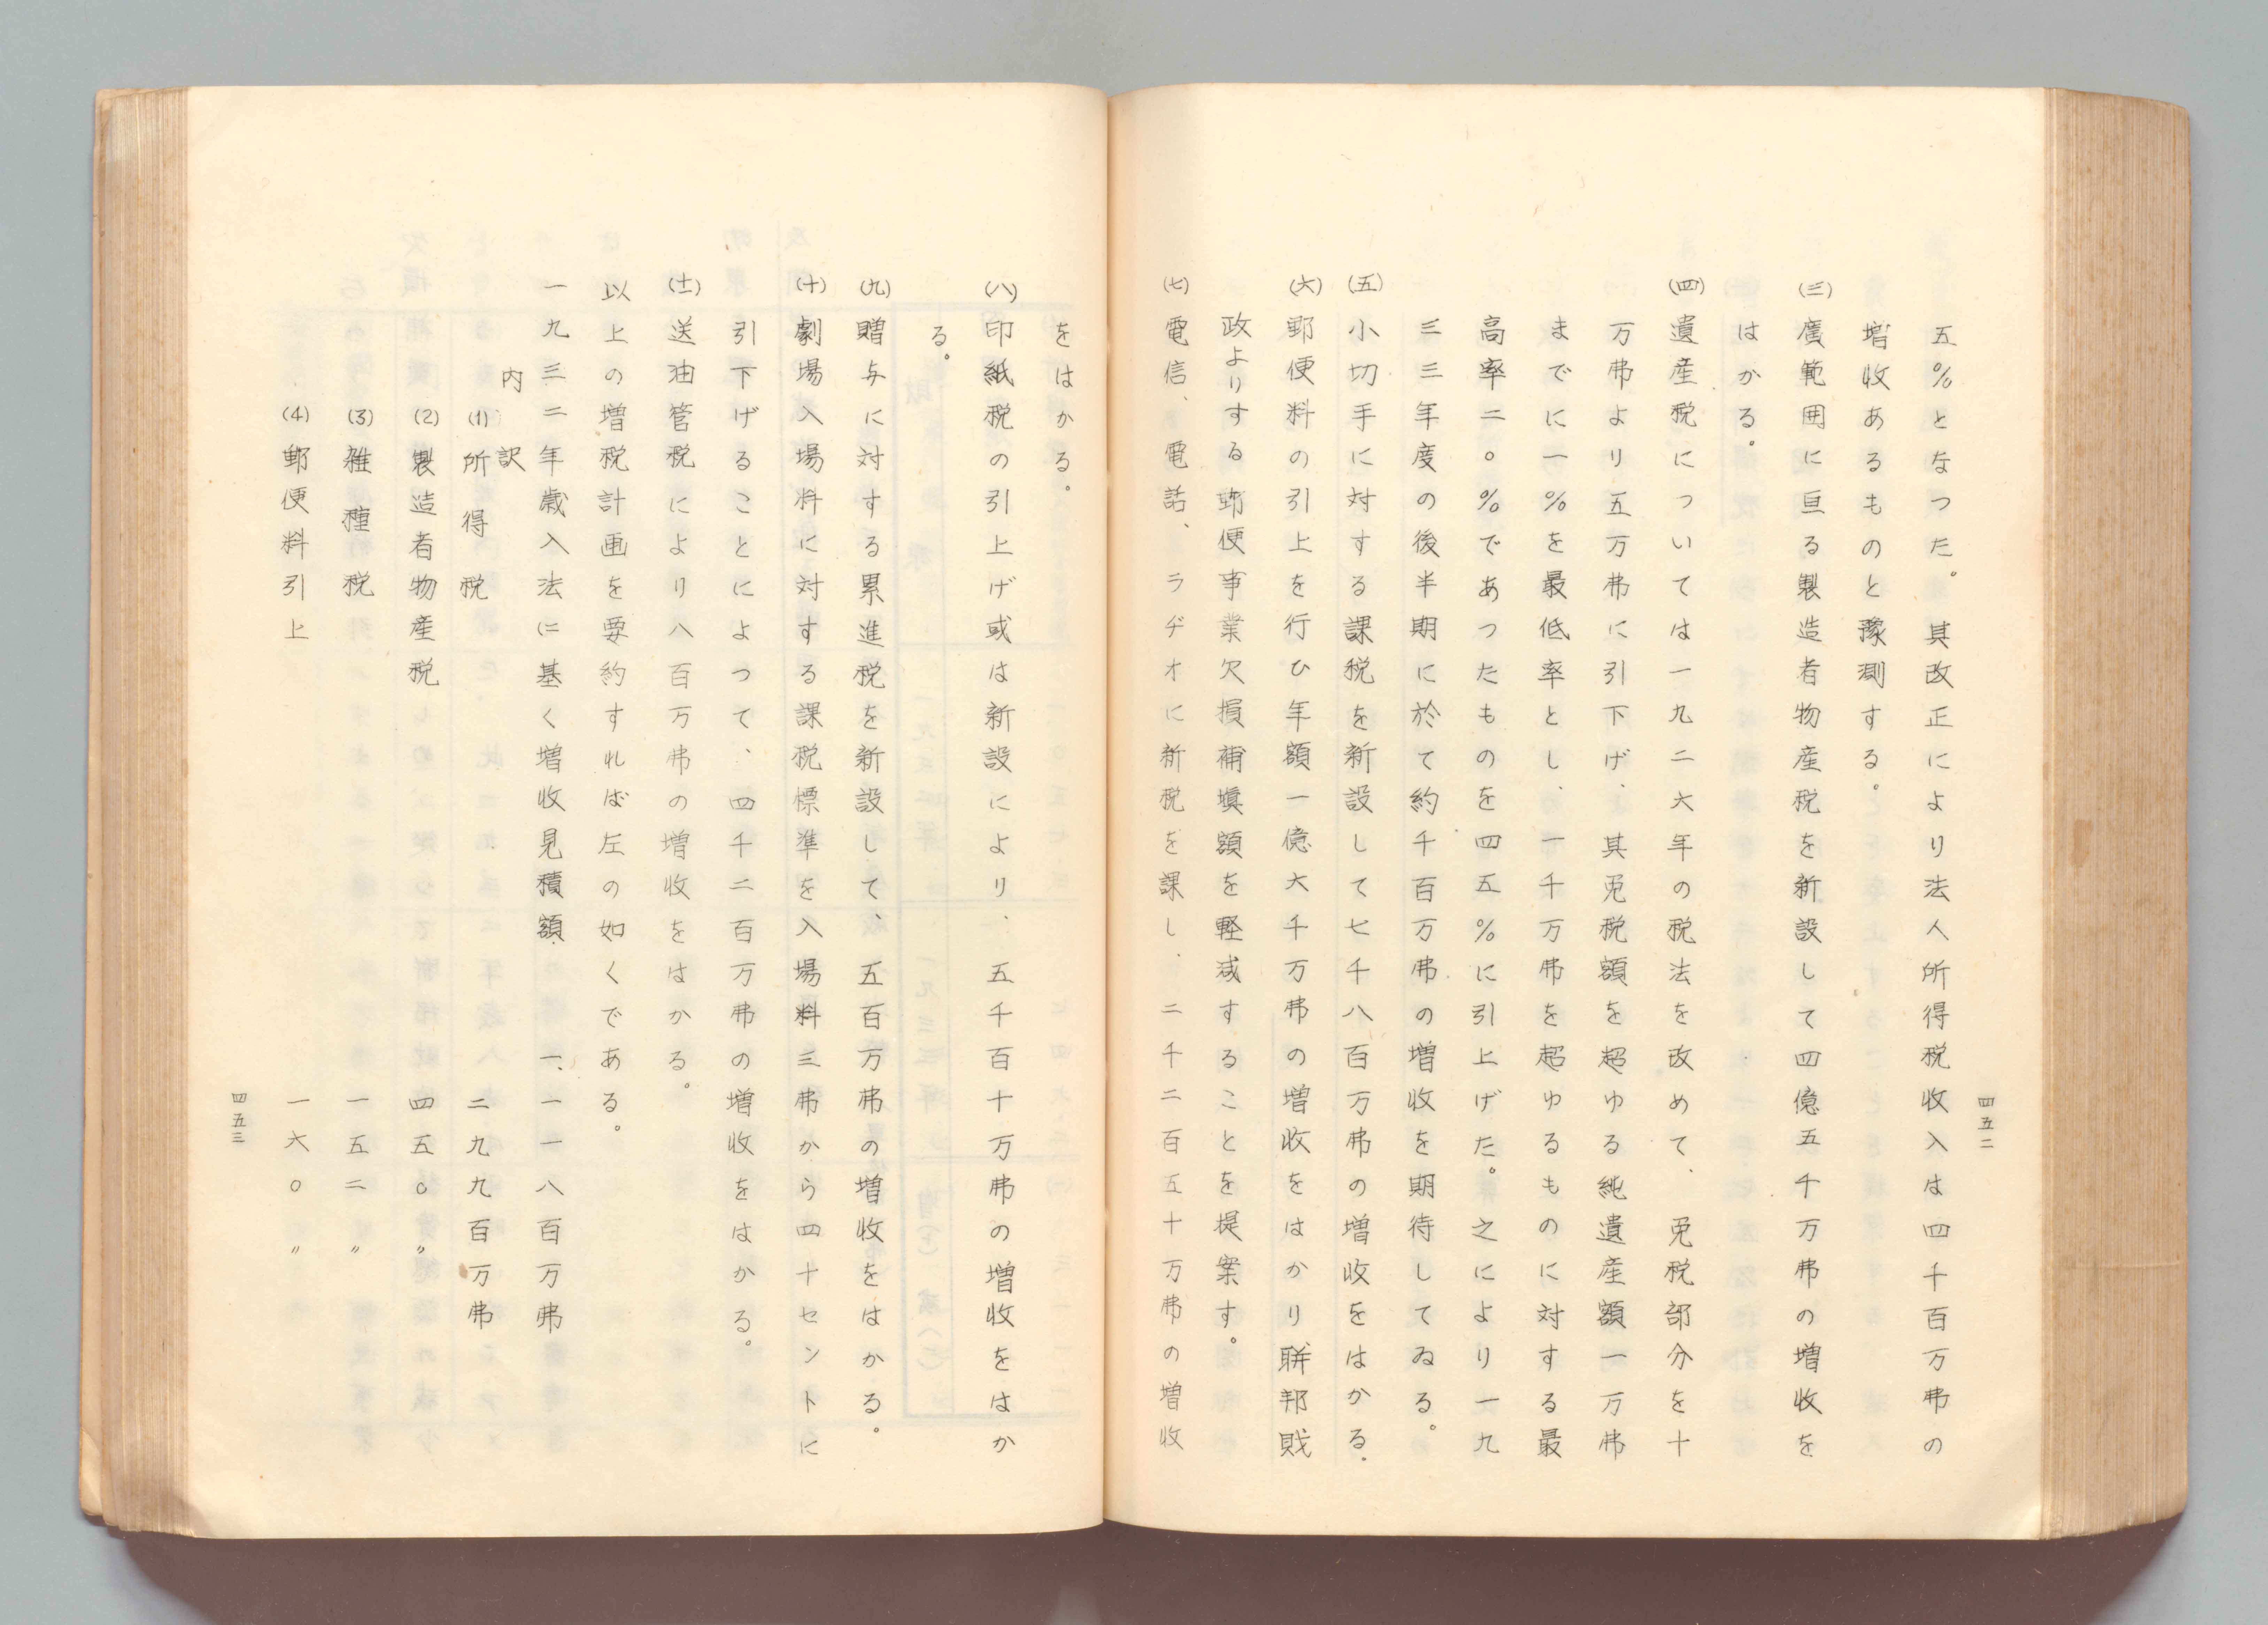 五％となつた。其改正により法人所得税收入は四千百万弗の
増收あるものと豫測する。
(三)廣範囲に亘る製造者物産税を新設して四億五千万弗の増收を
はかる。
(四)遺産税については一九二六年の税法を改めて、免税部分を十
万弗より五万弗に引下げ、其免税額を超ゆる純遺産額一万弗
までに一％を最低率とし、一千万弗を超ゆるものに対する最
高率二〇％であつたものを四五％に引上げた。之により一九
三三年度の後半期に於て約千百万弗の増收を期待してゐる。
(五)小切手に対する課税を新設して七千八百万弗の増收をはかる。
(六)郵便料の引上を行ひ年額一億六千万弗の増收をはかり聯邦財
政よりする郵便事業欠損補塡額を軽减することを提案す。
(七)電信、電話、ラヂオに新税を課し、二千二百五十万弗の増收
四五二
をはかる。
(八)印紙税の引上げ或は新設により、五千百十万弗の増收をはか
る。
(九)贈与に対する累進税を新設して、五百万弗の増收をはかる。
(十)劇場入場料に対する課税標準を入場料三弗から四十セントに
引下げることによつて、四千二百万弗の増收をはかる。
(十一)送油管税により八百万弗の増收をはかる。
以上の増税計画を要約すれば左の如くである。
一九三二年歳入法に基く増收見積額 一、一一八百万弗
内訳
(1)所得税 二九九百万弗
(2)製造者物産税 四五〇〃
(3)雑種税 一五二〃
(4)郵便料引上 一六〇〃
四五三